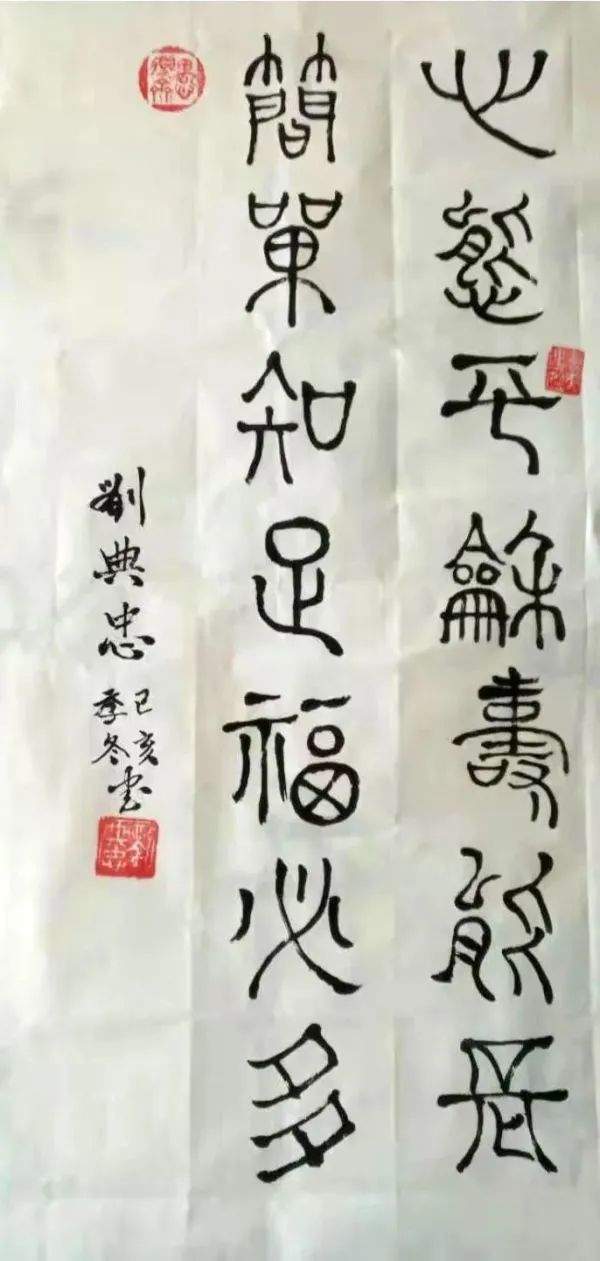 心態平龢壽能長
簡單知足福必多
劉典忠
己亥
季冬書